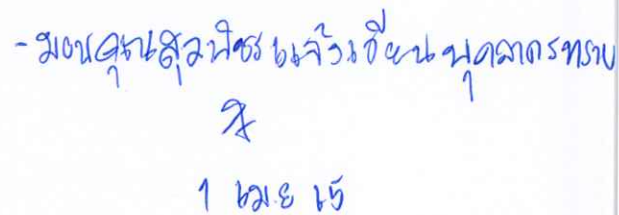 - มอบคุณสุวพิชร แจ้งเวียนบุคลากรทราบ
1 เมย 65